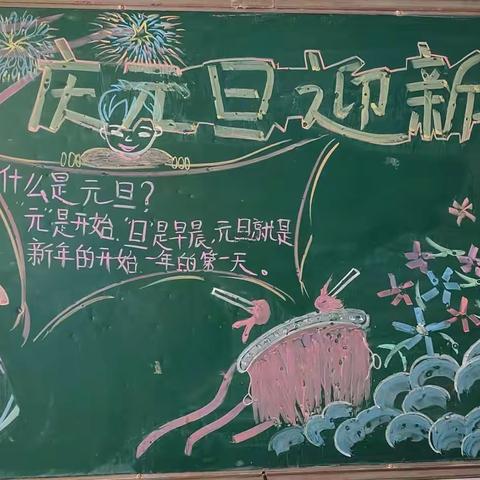 庆元旦迎新
什么是元旦?
"元"是开始,"旦"是早晨,元旦就是
新年的开始,一年的第一天。